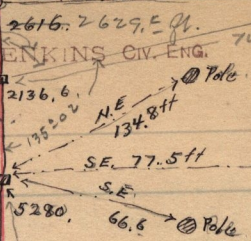 2616. 2629.
ENKINS CIV. ENG.
2136.6.
Pole
N.E
134.8ft
135.02
S.E. 77.5ft
S.E
5280.
66.6
Pole